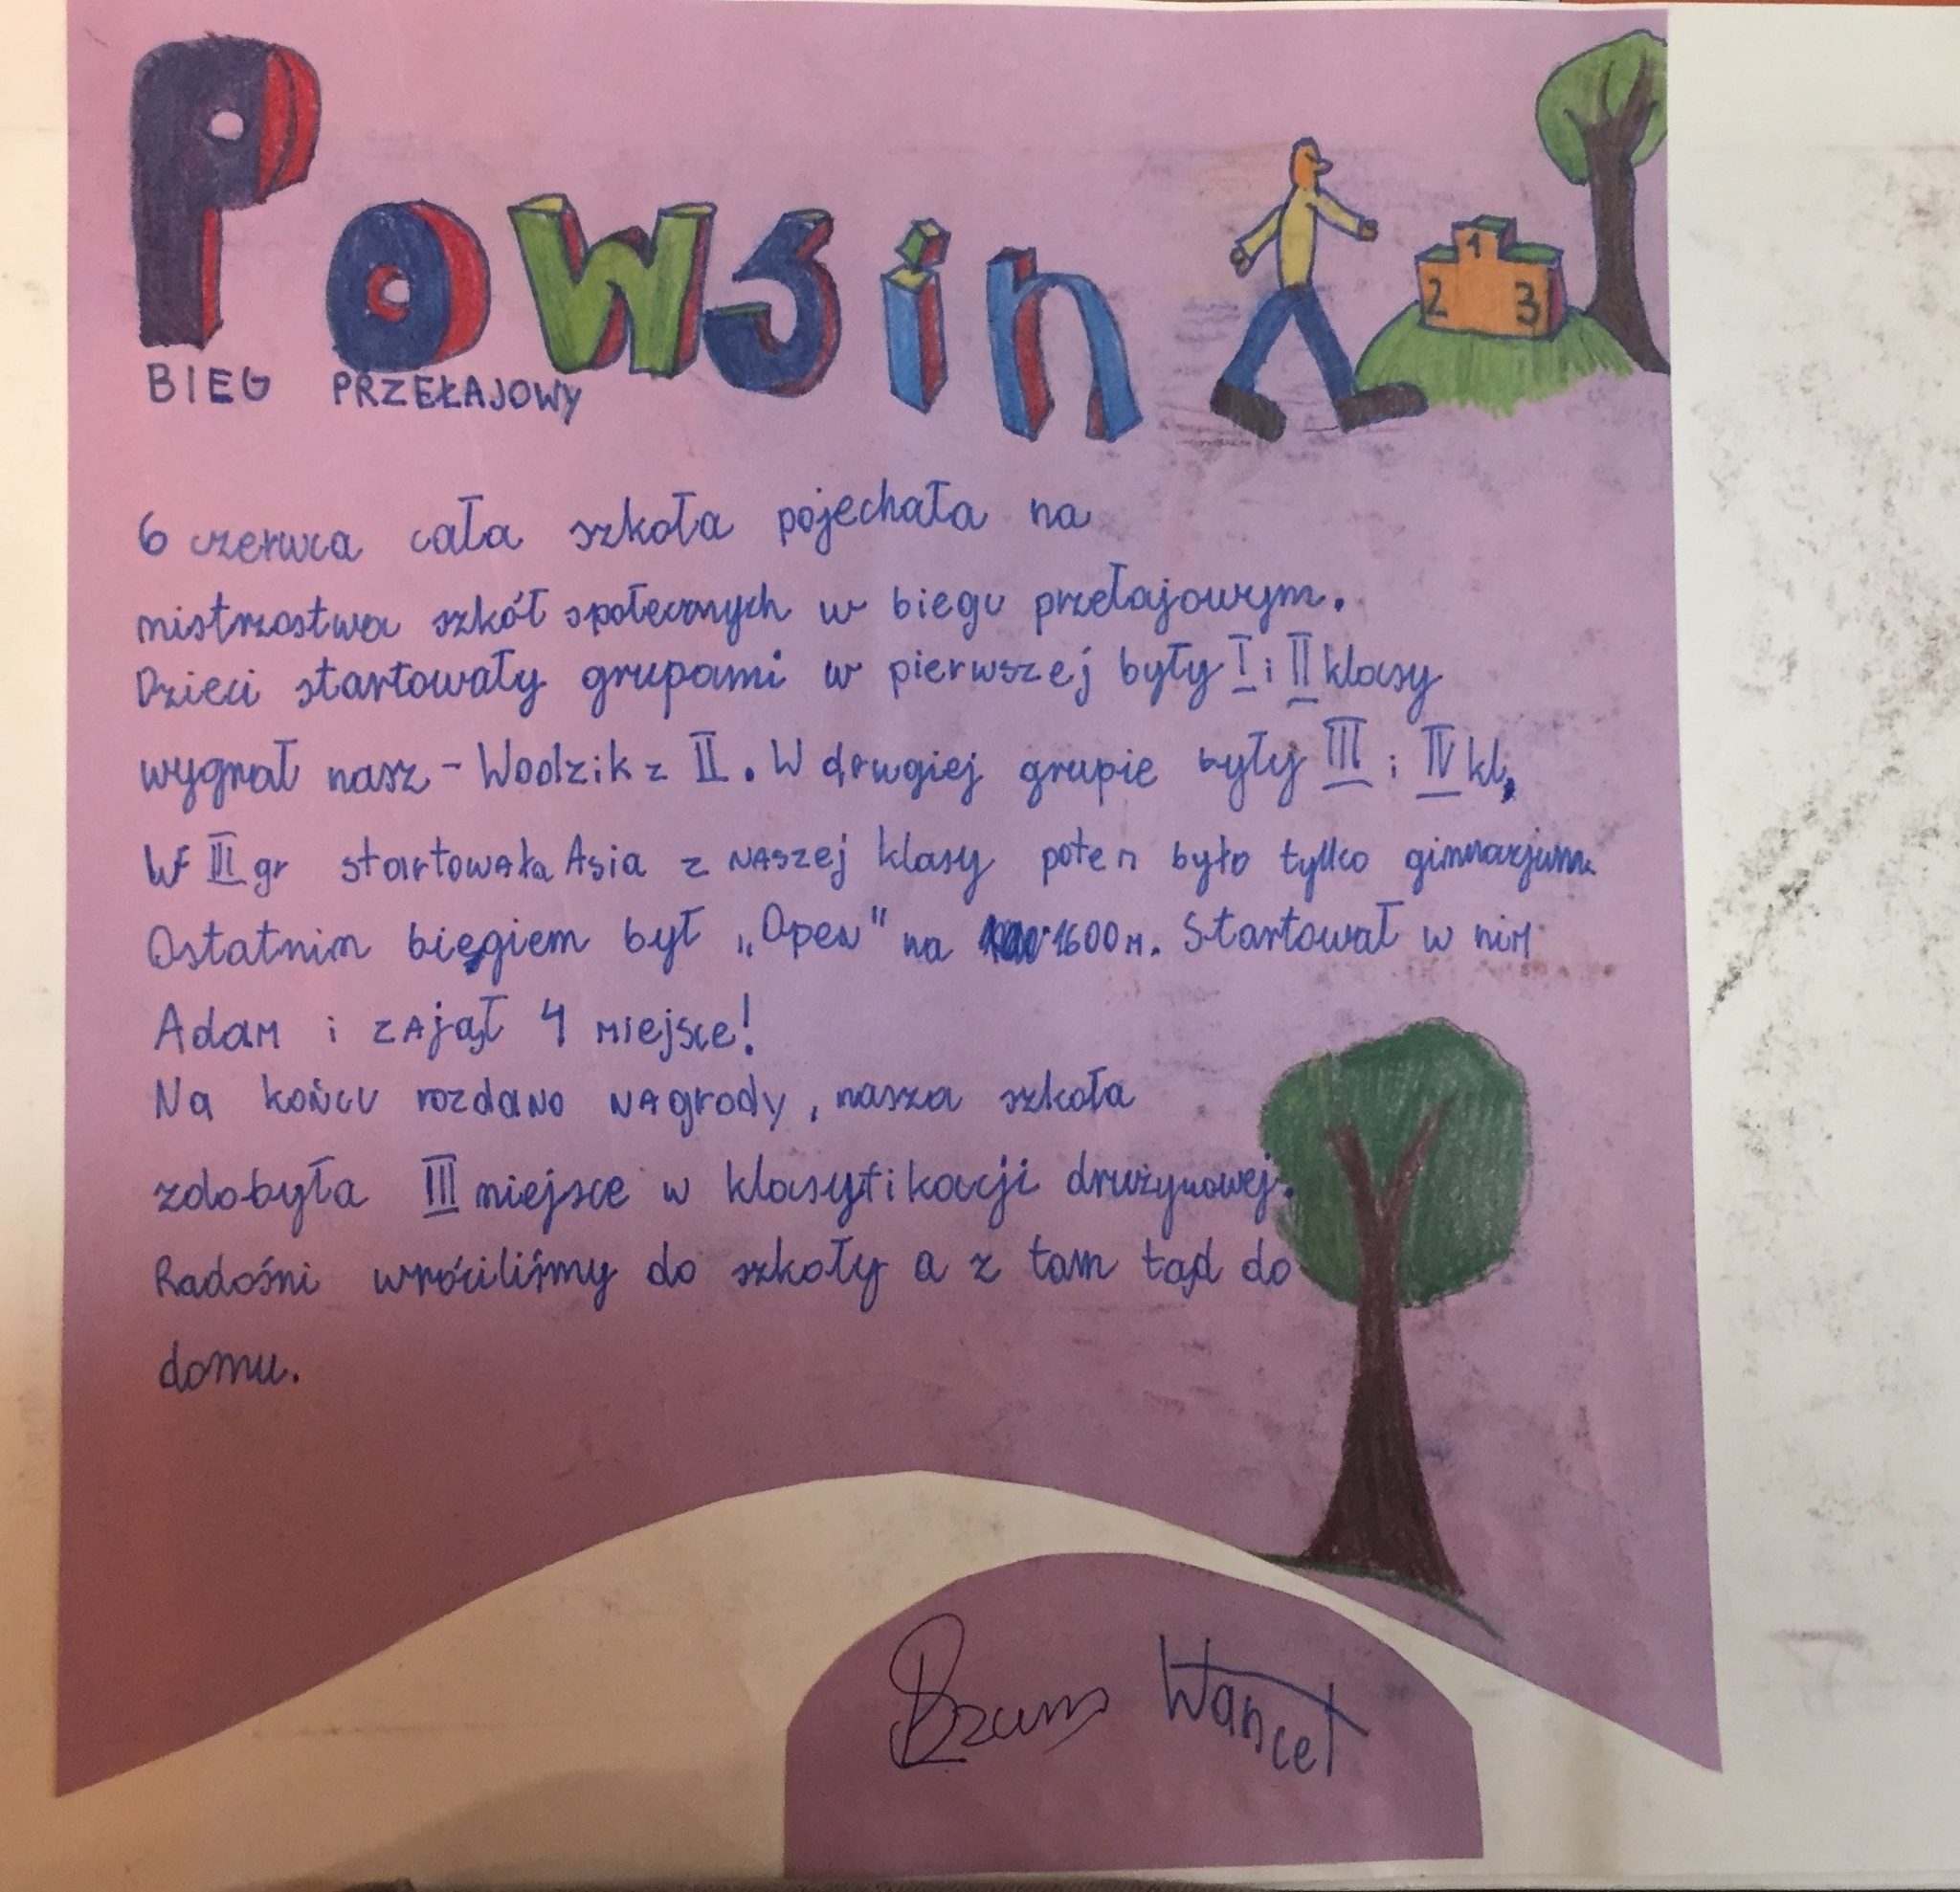 Powsin
BIEG PRZEŁAJOWY
1
2 3
6 czerwca cała szkoła pojechała na
mistrzostwa szkół społecznych w biegu przełajowym.
Dzieci startowały grupami w pierwszej były I i II klasy
wygrał nasz - Wodzik z II. W drugiej grupie były III i IV kl.
W III gr startowała Asia z naszej klasy potem było tylko gimnazjum
Ostatnim biegiem był „Open" na 1600 m. Startował w nim
Adam i zajął 4 miejsce!
Na końcu rozdano nagrody, nasza szkoła
zdobyła III miejsce w klasyfikacji drużynowej.
Radośni wróciliśmy do szkoły a z tam tąd do
domu.